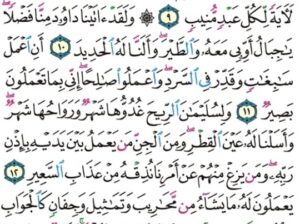 لَأٓيَةٗ لِّكُلِّ عَبۡدٖ مُّنِيبٖ ٩ ۞ وَلَقَدۡ ءَاتَيۡنَا دَاوُۥدَ مِنَّا فَضۡلٗاۖ
يَٰجِبَالُ أَوِّبِي مَعَهُۥ وَٱلطَّيۡرَۖ وَأَلَنَّا لَهُ ٱلۡحَدِيدَ ١٠ أَنِ ٱعۡمَلۡ
سَٰبِغَٰتٖ وَقَدِّرۡ فِي ٱلسَّرۡدِۖ وَٱعۡمَلُواْ صَٰلِحًاۖ إِنِّي بِمَا تَعۡمَلُونَ
بَصِيرٞ ١١ وَلِسُلَيۡمَٰنَ ٱلرِّيحَ غُدُوُّهَا شَهۡرٞ وَرَوَاحُهَا شَهۡرٞۖ
وَأَسَلۡنَا لَهُۥ عَيۡنَ ٱلۡقِطۡرِۖ وَمِنَ ٱلۡجِنِّ مَن يَعۡمَلُ بَيۡنَ يَدَيۡهِ بِإِذۡنِ
رَبِّهِۦۖ وَمَن يَزِغۡ مِنۡهُمۡ عَنۡ أَمۡرِنَا نُذِقۡهُ مِنۡ عَذَابِ ٱلسَّعِيرِ ١٢
يَعۡمَلُونَ لَهُۥ مَا يَشَآءُ مِن مَّحَٰرِيبَ وَتَمَٰثِيلَ وَجِفَانٖ كَٱلۡجَوَابِ